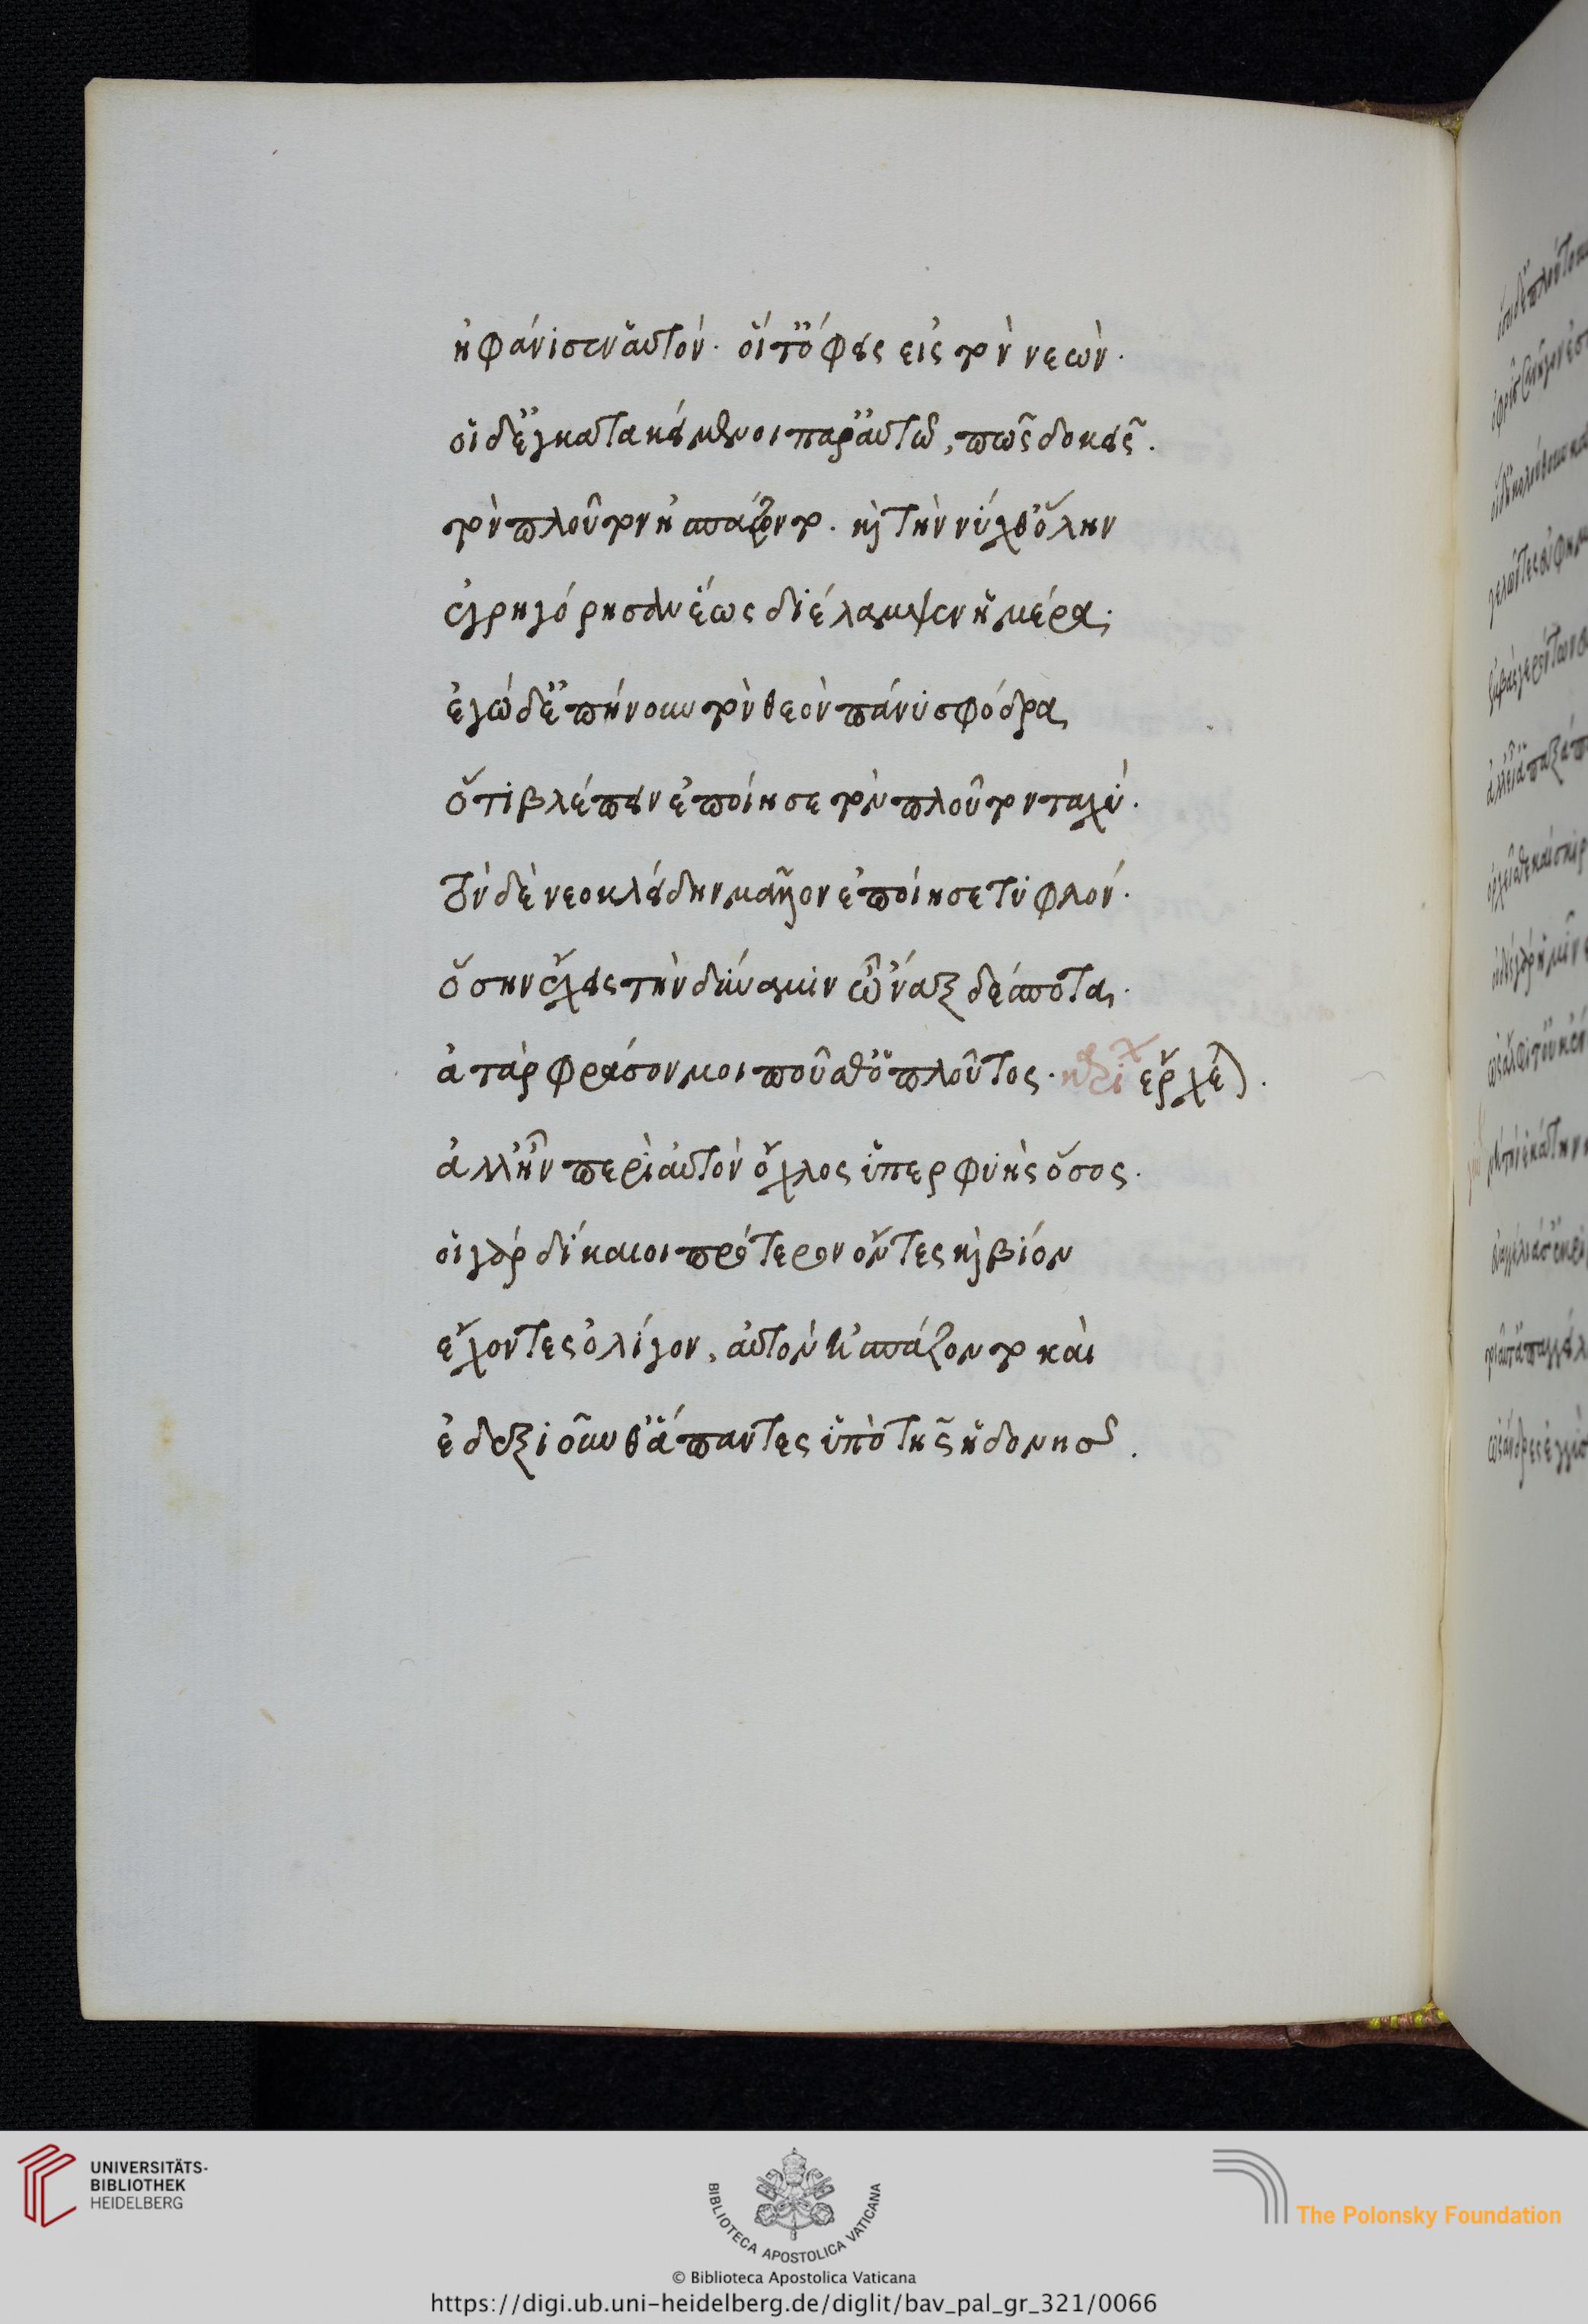 ἠφάνισεν αὑτὸν· οἵ τ' ὄφεις εἰς τὸν νεών·
οἱ δ' ἐγκατακείμενοι παρ' αὐτῶ, πῶς δοκεῖς.
τὸν πλοῦτον ἠσπάζοντο. καὶ τὴν νύχθ' ὅλην
ἐγρηγόρησαν ἕως διέλαμψεν ἡμέρα·
ἐγὼ δ' ἐπήνουν τὸν θεὸν πάνυ σφόδρα,
ὅτι βλέπειν ἐποίησε τὸν πλοῦτον ταχύ·
τὸν δὲ νεοκλείδην μᾶλλον ἐποίησε τυφλόν·
ὅσην ἔχεις τὴν δύναμιν ὦ 'ναξ δέσποτα,
ἀτὰρ φράσον μοι ποῦ 'σθ' ὁ πλοῦτος· ἔρχεται.
ἀλλ' ἦν περὶ αὐτὸν ὄχλος ὑπερφυὴς ὅσος·
οἱ γὰρ δίκαιοι πρότερον ὄντες καὶ βίον
ἔχοντες ὀλίγον, αὐτὸν ἠσπάζοντο καὶ
ἐδεξιοῦνθ' ἅπαντες ὑπὸ τῆς ἡδονῆς.
UNIVERSITÄTS-
BIBLIOTHEK
HEIDELBERG
BIBLIOTECA APOSTOLICA VATICANA
The Polonsky Foundation
© Biblioteca Apostolica Vaticana
https://digi.ub.uni-heidelberg.de/diglit/bav_pal_gr_321/0066